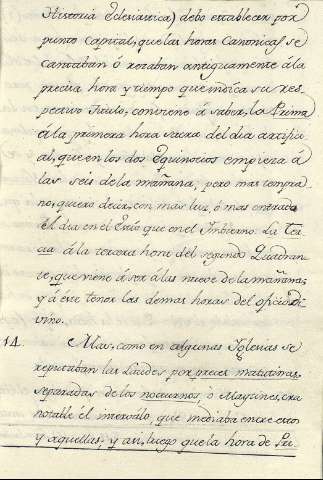 Historia Eclesiastica) debo establecer por
punto capital, que las horas Canonicas se
cantaban ó rezaban antiguamente á la
precisa hora y tiempo que indica su res-
pectivo titulo, conviene á saber, la Prima
á la primera hora del dia artifici-
al, que en los dos Equinocios empieza á
las seis de la mañana, pero mas tempra-
no, quiero decir, con mas luz, ó mas entrado
el dia en el Estío que en el Imbierno: La Ter-
cia á la tercera hora del segundo Quadran-
te, que viene á ser á las nueve de la mañana;
y á este tenor las demas horas del oficio Di-
vino.
14. Mas, como en algunas Iglesias se
reputaban las Laudes por preces matutinas,
separadas de los nocturnos, ó Maytines, era
notable el intervalo, que mediaba entre estos
y aquellas; y asi, luego que la hora de Pri-